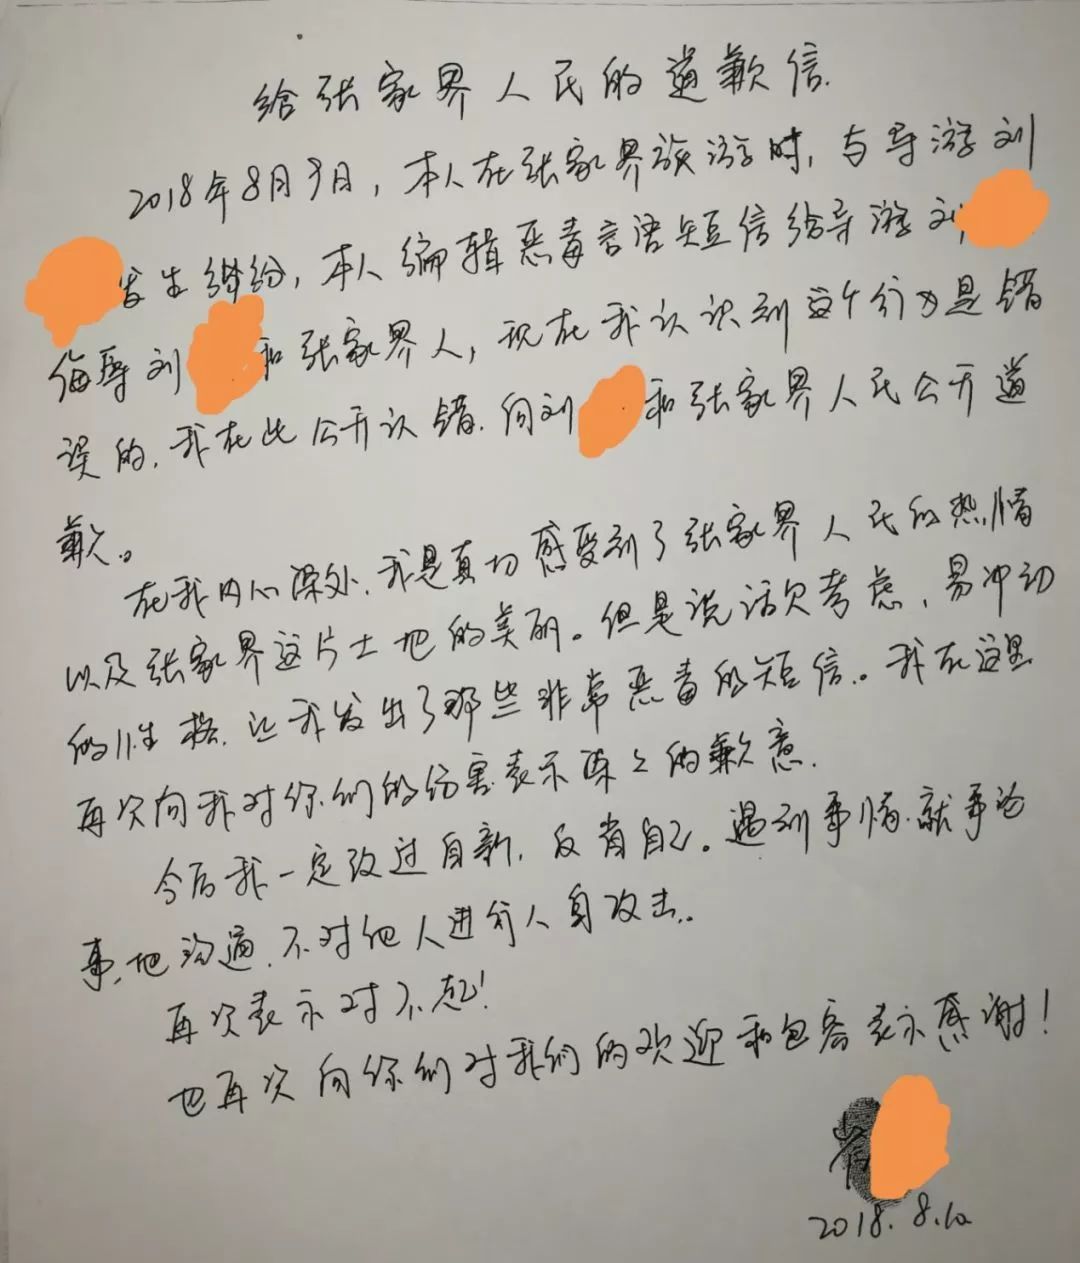 给张家界人民的道歉信.
2018年8月9日,本人在张家界旅游时,与导游刘
发生纠纷,本人编辑恶毒言语短信给导游刘
侮辱刘 和张家界人,现在我认识到这个行为是错
误的,我在此公开认错.向刘 和张家界人民公开道
歉。
在我内心深处,我是真切感受到了张家界人民的热情
以及张家界这片土地的美丽。但是说话欠考虑,易冲动
的性格,让我发出了那些非常恶毒的短信。我在这里
再次向我对你们的伤害表示深深的歉意.
今后我一定改过自新,反省自己。遇到事情.就事论
事.地沟通,不对他人进行人身攻击.
再次表示对不起!
也再次向你们对我们的欢迎和包容表示感谢!
2018.8.10